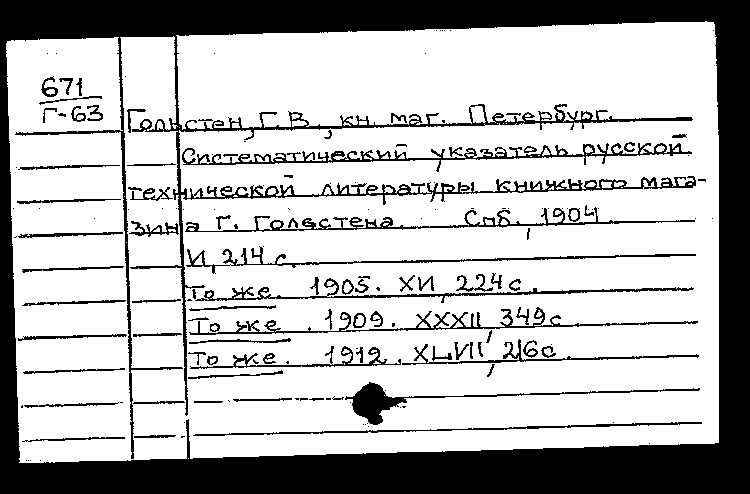 671
Г-63
Гольстен, Г.В., кн. маг. Петербург.
Систематический указатель русской
технической литературы книжного мага-
зина Г. Гольстена. Спб., 1904
VI, 214 с.
То же. 1905. XVI, 224 с.
То же. 1909. XXXII, 349 с
То же. 1912. XLVII, 216 с.